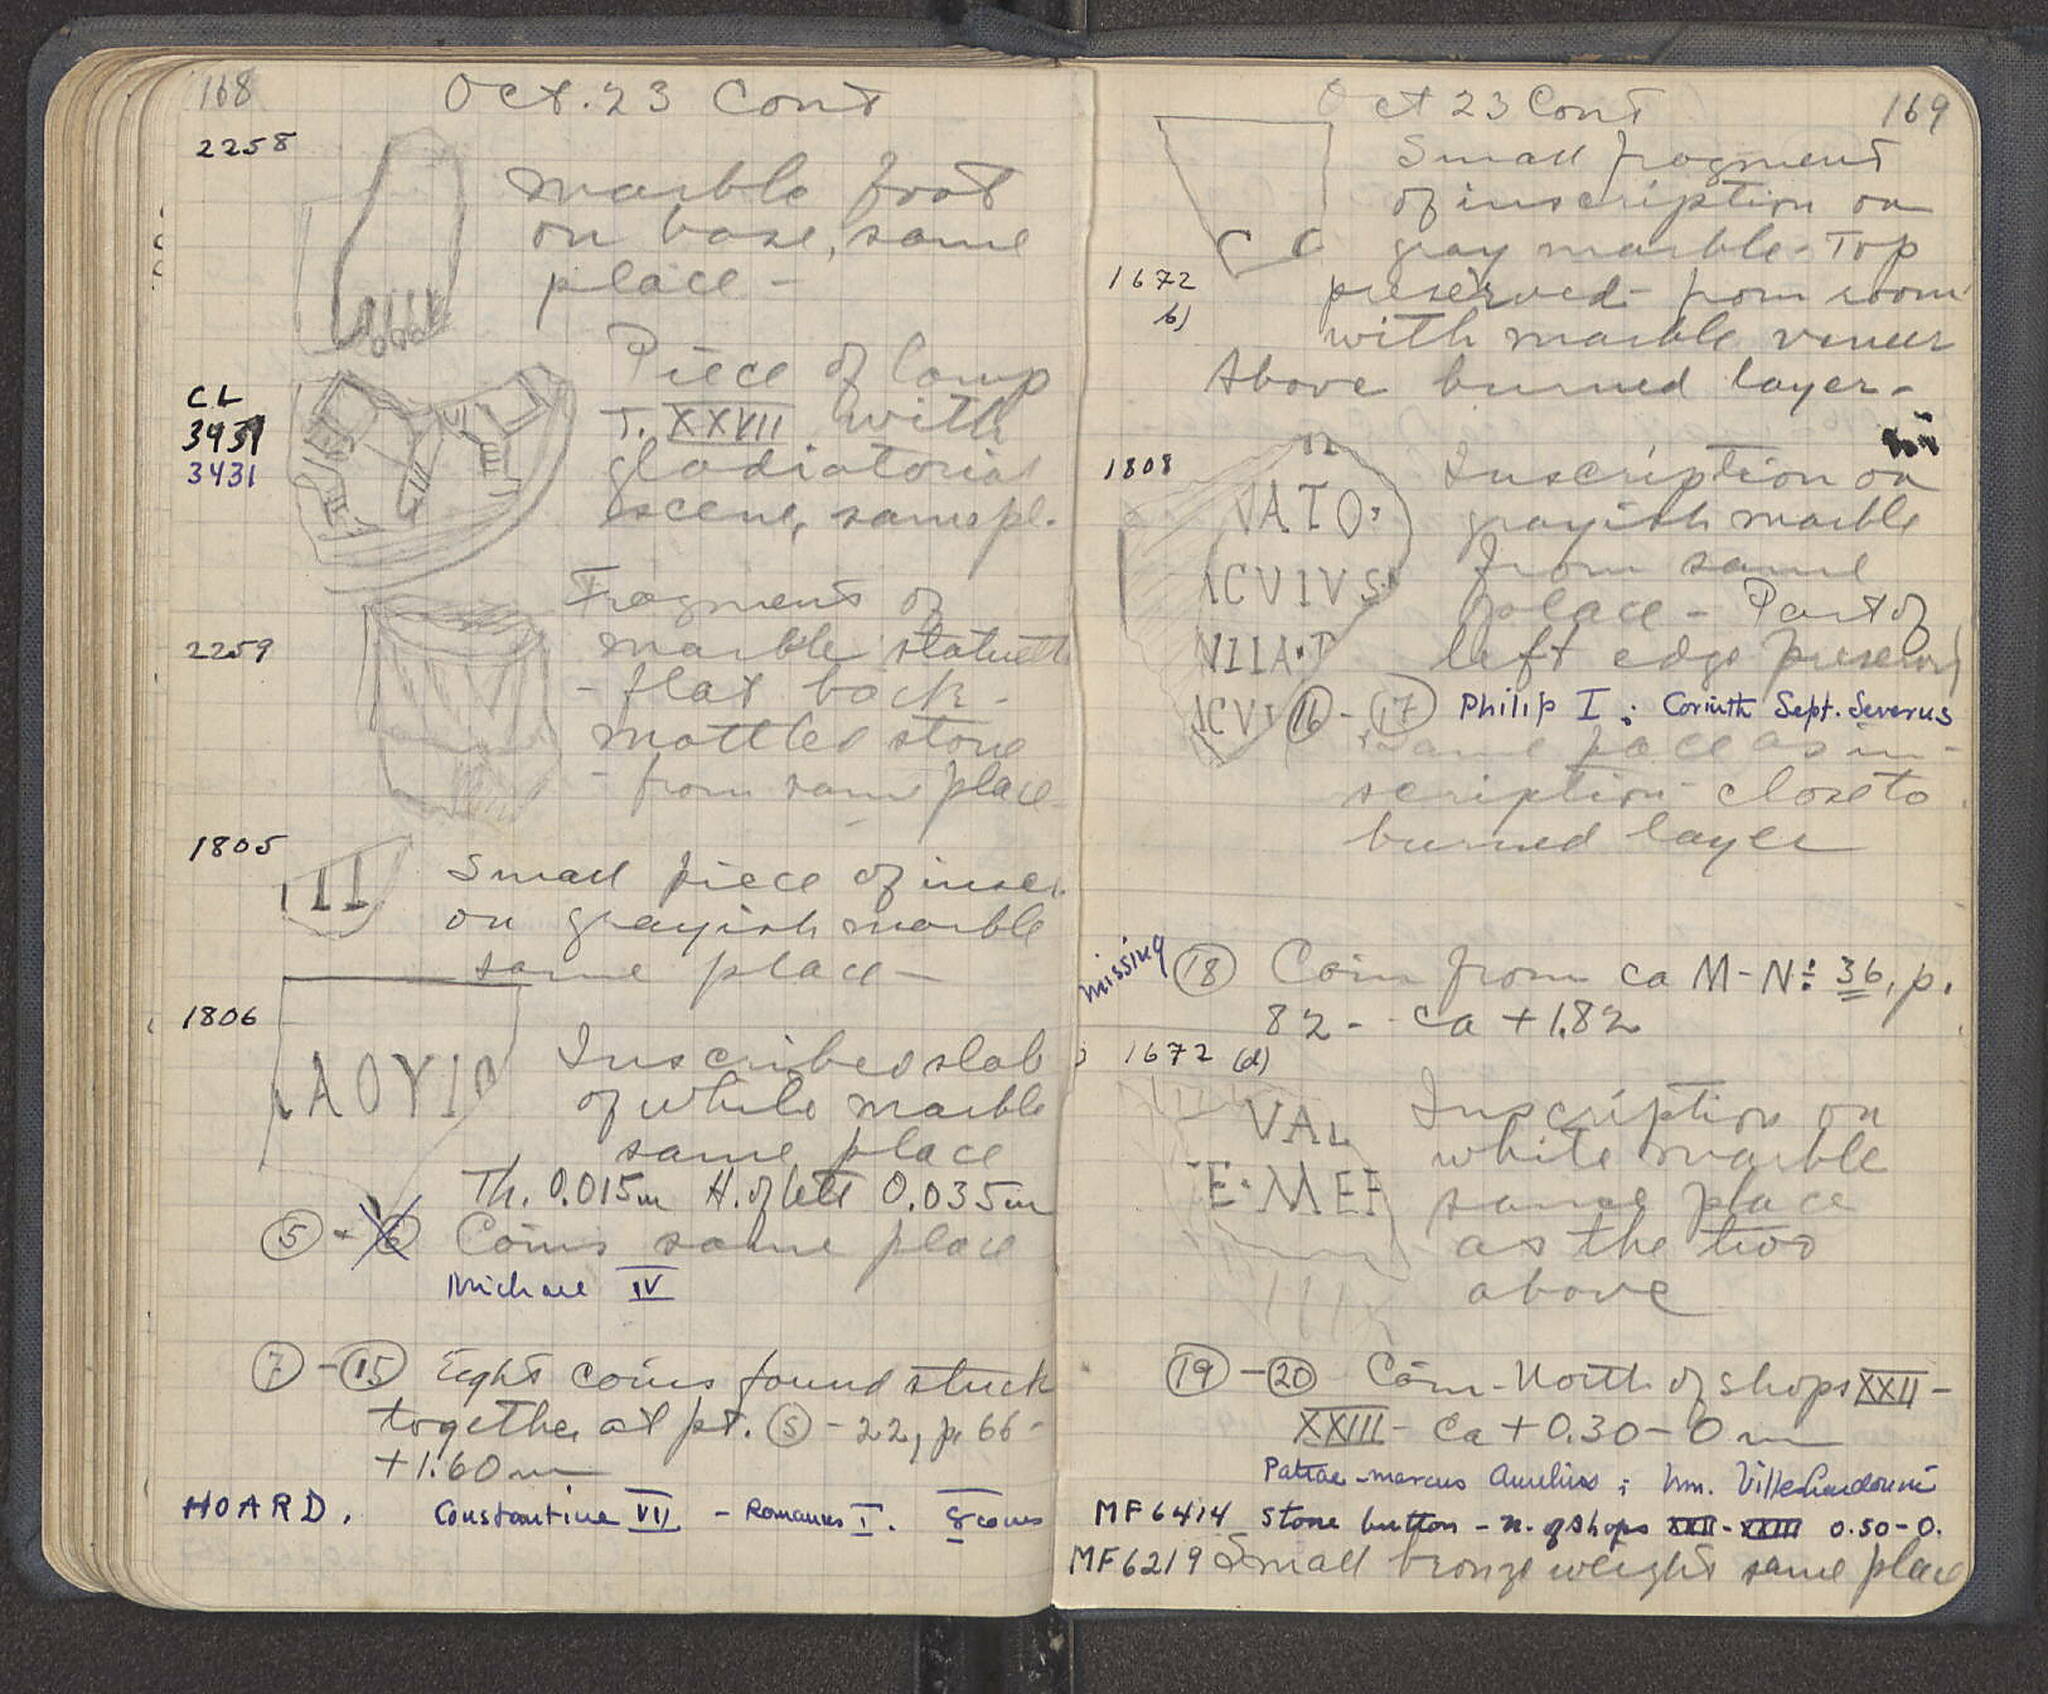 168
Oct. 23 Cont
2258
Marble foot
on base, same
place -
CL
3431
3431
Piece of lamp
T. XXVII with
gladiatorial
scene, same pl.
2259
Fragment of
marble statuette
- flat back -
mottled stone
- from same place -
1805
III
Small piece of inscr.
on grayish marble
same place -
1806
AOYIO
Inscribed slab
of white marble
same place
Th. 0.015m H. of lett 0.035m
5 - 6 Coins same place
Michael IV
7 - 15 Eight coins found stuck
together at pt. 5 - 22, p. 66 -
+1.60m
HOARD. Constantine VII - Romanus I. 8 coins
Oct 23 Cont
169
C C
1672
b)
Small fragment
of inscription on
gray marble - Top
preserved - from room
with marble veneer
Above burned layer -
1808
VATO
ACVIVS
NIIA·P
ACVI
Inscription on
grayish marble
from same
place - Part of
left edge preserved
16 - 17 Philip I ; Corinth Sept. Severus
Same place as in-
scription close to
burned layer
missing
18 Coin from ca M - No: 36, p.
82 - ca +1.82
1672 (d)
VAL
E·MEF
Inscription on
white marble
same place
as the two
above
19 - 20 Coin - North of shops XXII -
XXIII - Ca +0.30 - 0 m
Patrae - Marcus Aurelius ; Wm. Villehardouin
MF 6414 Stone button - n. of shops XXII - XXIII 0.50-0.
MF 6219 Small bronze weight same place